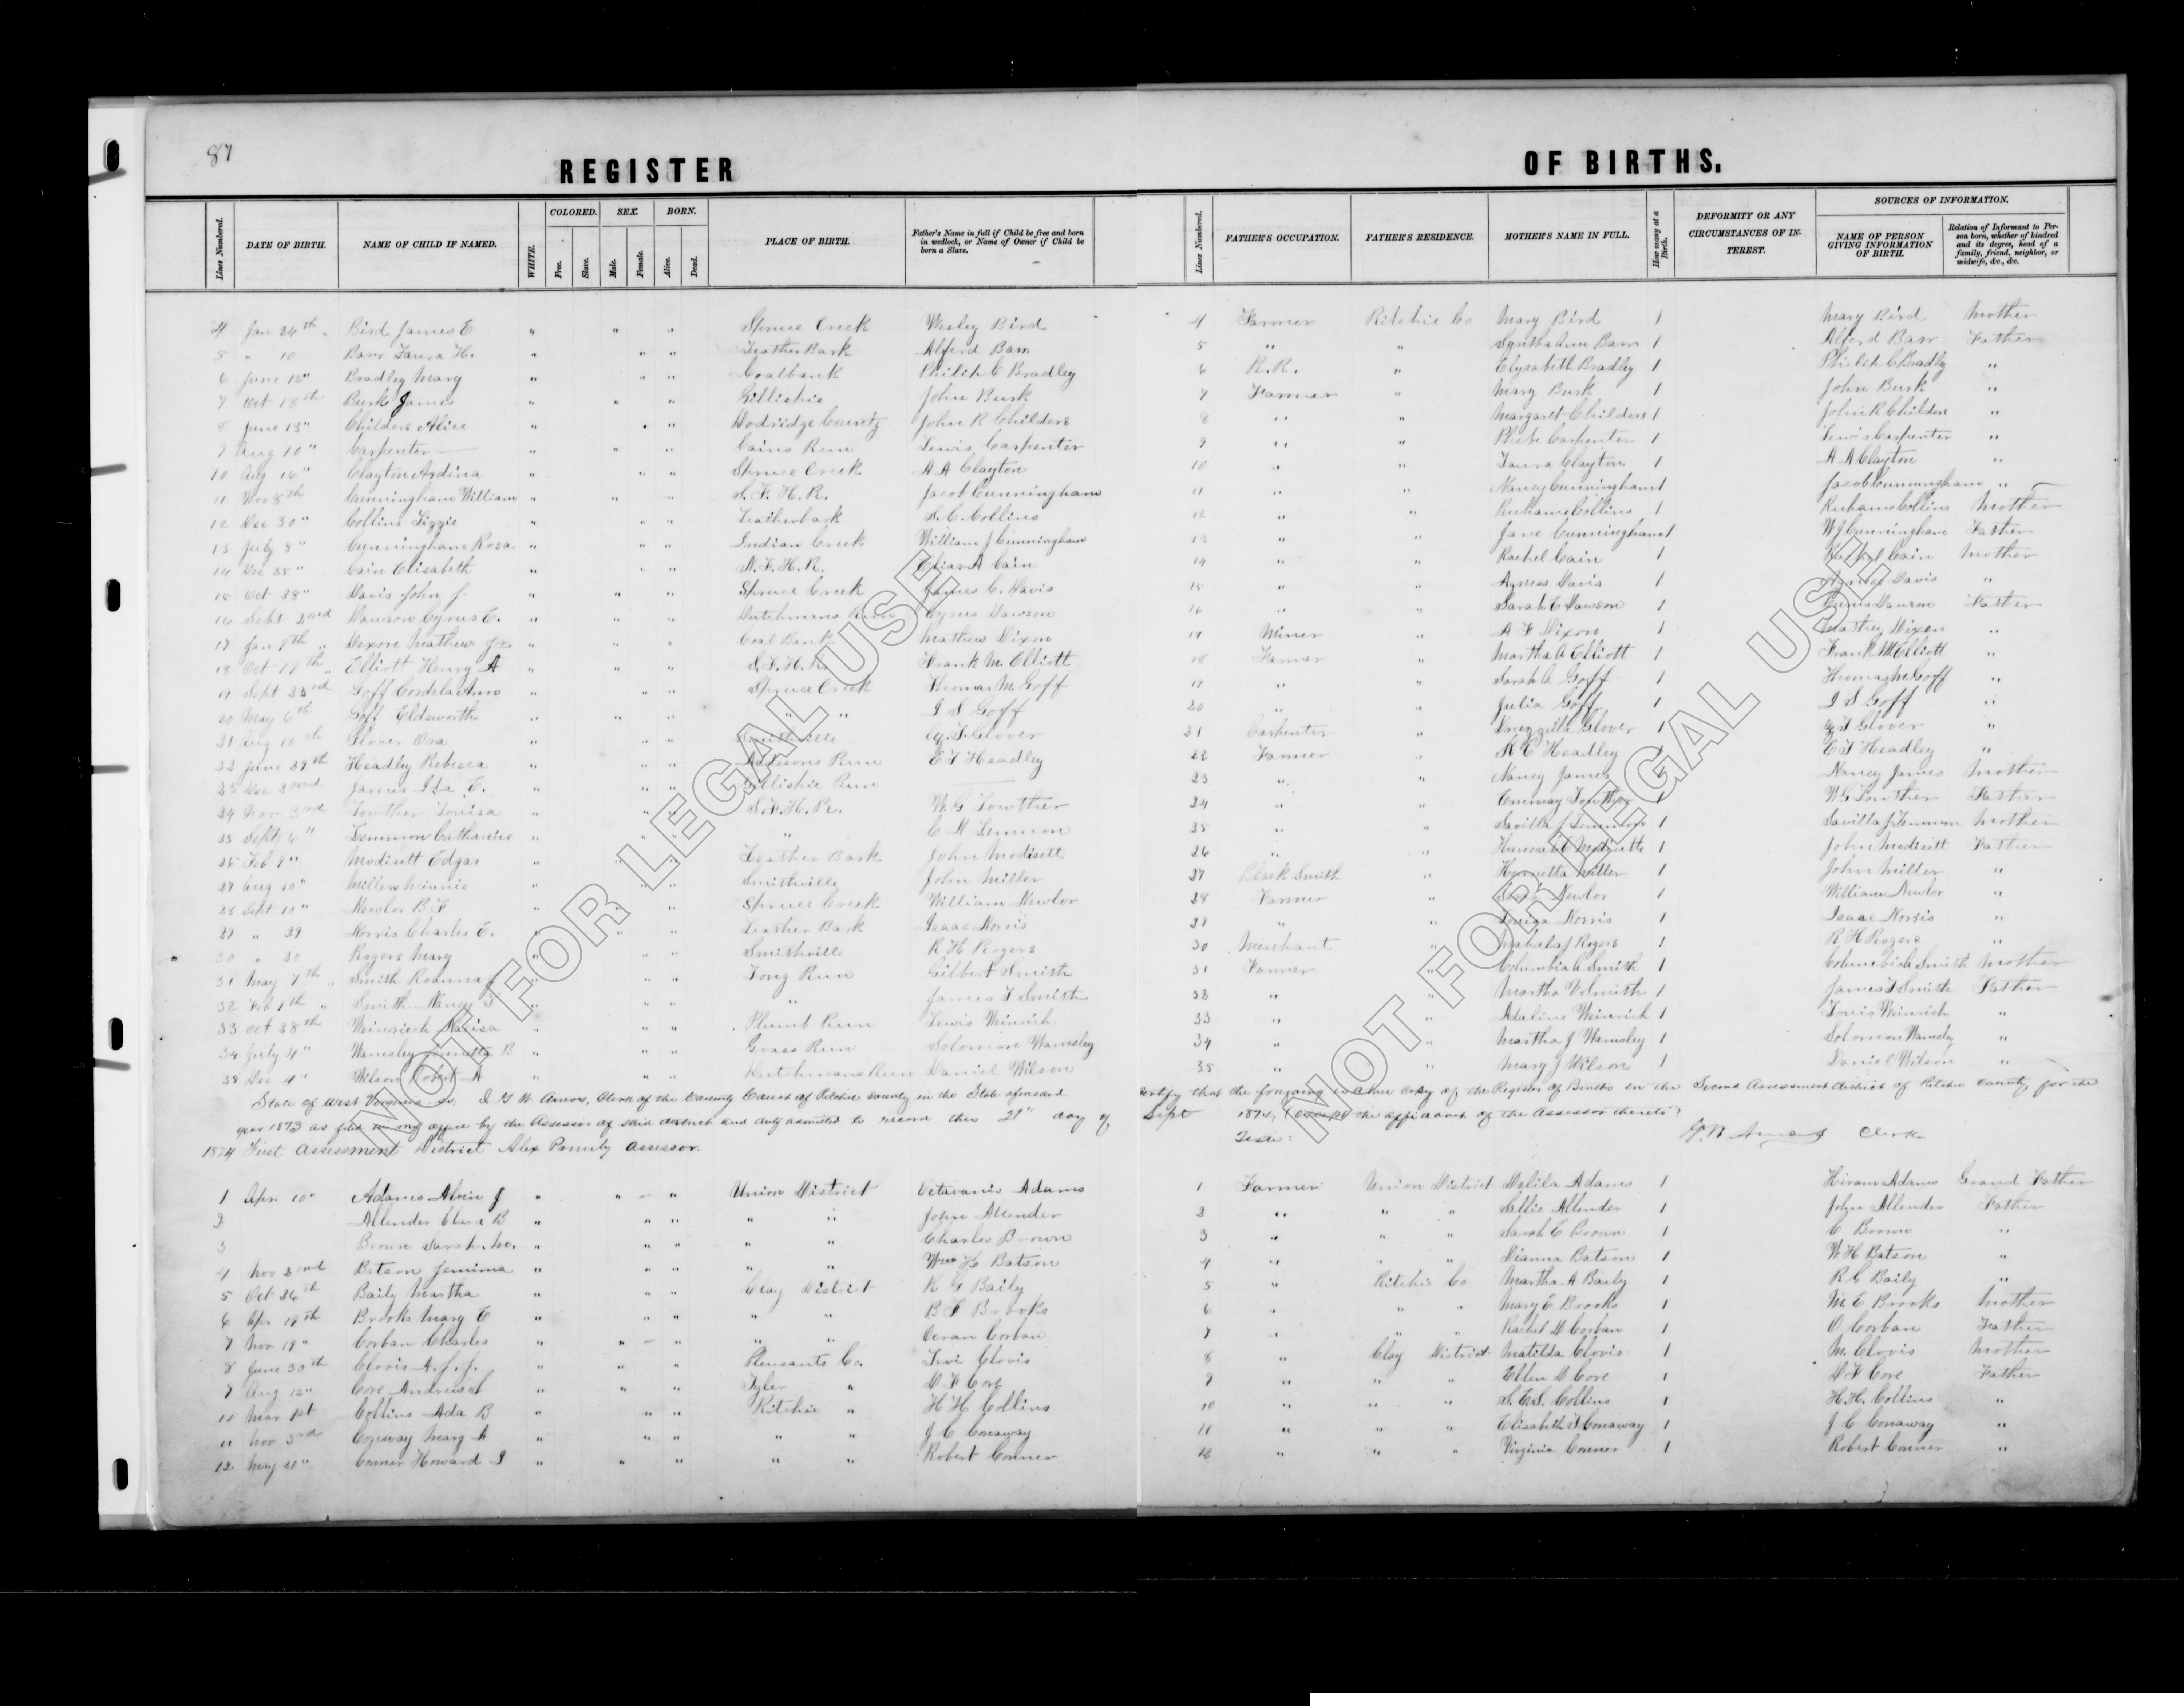 87
REGISTER OF BIRTHS.
Lines Numbered. DATE OF BIRTH. NAME OF CHILD IF NAMED. WHITE. COLORED. Free. Slave. SEX. Male. Female. BORN. Alive. Dead. PLACE OF BIRTH. Father's Name in full if Child be free and born in wedlock, or Name of Owner if Child be born a Slave. Lines Numbered. FATHER'S OCCUPATION. FATHER'S RESIDENCE. MOTHER'S NAME IN FULL. How many at a Birth. DEFORMITY OR ANY CIRCUMSTANCES OF INTEREST. SOURCES OF INFORMATION. NAME OF PERSON GIVING INFORMATION OF BIRTH. Relation of Informant to Person born, whether of kindred and its degree, head of a family, friend, neighbor, or midwife, &c., &c.
4 Jan 24th Bird James E " " " Spruce Creek Wesley Bird 4 Farmer Ritchie Co Mary Bird 1 Mary Bird Mother
5 " 10 Barr Laura H. " " " Leather Bark Alferd Barr 5 " " Syntha Ann Barr 1 Alferd Barr Father
6 June 12" Bradley Mary " " " Coalbank Philip C Bradley 6 R.R. " Elysabeth Bradley 1 Philip C Bradly "
7 Oct 18th Burk James " " " Gillispie John Burk 7 Farmer " Mary Burk 1 John Burk "
8 June 13" Childers Alice " " " Dodridge County John R Childers 8 " " Margaret Childers 1 John R Childers "
9 Aug 10" Carpenter — " " " Cains Run Lewis Carpenter 9 " " Phebe Carpenter 1 Lewis Carpenter "
10 Aug 16" Clayton Ardina " " " Spruce Creek A A Clayton 10 " " Laura Clayton 1 A A Clayton "
11 Nov 8th Cunningham William " " " S. F. H. R. Jacob Cunningham 11 " " Nancy Cunningham 1 Jacob Cunningham "
12 Dec 30" Collins Lizzie " " " Leatherbark S. C. Collins 12 " " Ruhama Collins 1 Ruhama Collins Mother
13 July 8" Cunningham Rosa " " " Indian Creek William J Cunningham 13 " " Jane Cunningham 1 W J Cunningham Father
14 Dec 25" Cain Elisabeth " " " N. F. H. R. Elias A Cain 14 " " Rachel Cain 1 Rachel Cain Mother
15 Oct 28" Davis John J. " " " Spruce Creek James C. Davis 15 " " Agness Davis 1 Agness Davis "
16 Sept 22nd Dawson Cyrus E. " " " Dutchmans Run Cyrus Dawson 16 " " Sarah E Dawson 1 Cyrus Dawson Father
17 Jan 9th Dixon Mathew Jr " " " Coal Bank Mathew Dixon 17 Miner " A F Dixon 1 Mathew Dixon "
18 Oct 17th Elliott Henry A " " " S. F. H. R. Frank M. Elliott 18 Farmer " Martha A Elliott 1 Frank M Elliott "
19 Sept 23rd Goff Cordela Ann " " " Spruce Creek Thomas M. Goff 19 " " Sarah A Goff 1 Thomas M Goff "
20 May 6th Goff Eldsworth " " " " " I S Goff 20 " " Julia Goff 1 I S Goff "
21 Aug 10th Glover Ora " " " Smithville Glover 21 Carpenter " Druzzilla Glover 1 Glover "
22 June 29th Headley Rebecca " " " Addisons Run E T Headley 22 Farmer " Headley 1 E T Headley "
23 Dec 2nd James Ida E. " " " Gillispie Run — 23 " " Nancy James 1 Nancy James Mother
24 Nov 3rd Lowther Louisa " " " S. F. H. R. W. G Lowther 24 " " Emmay Lowther 1 W G Lowther Father
25 Sept 6" Lemmon Catharine " " " " Lemmon 25 " " Savilla J Lemmon 1 Savilla J Lemmon Mother
26 Feb 9" Modisett Edgar " " " Leather Bark John Modisett 26 " " Hannah C Modisette 1 John Modisett Father
27 Aug 10" Miller Minnie " " " Smithville John Miller 27 Black Smith " Henrietta Miller 1 John Miller "
28 Sept 10" Newlor B F " " " Spruce Creek William Newlor 28 Farmer " Sarah Newlor 1 William Newlor "
29 " 29 Norris Charles E. " " " Leather Bark Isaac Norris 29 " " Louiza Norris 1 Isaac Norris "
30 " 30 Rogers Mary " " " Smithville R H Rogers 30 Merchant " Mahala J Rogers 1 R H Rogers "
31 May 7th Smith Roanna J " " " Long Run Gilbert Smith 31 Farmer " Columbia A Smith 1 Columbia A Smith Mother
32 Feb 9th Smith Nancy " " " " James F Smith 32 " " Martha V Smith 1 James F Smith Father
33 Oct 28th Weinrich " " " Plumb Run Lewis Weinrich 33 " " Adaline Weinrich 1 Louis Weinrich "
34 July 4" Wamsley B " " " Grass Run Solomon Wamsley 34 " " Martha J Wamsley 1 Solomon Wamsley "
35 Dec 4" Wilson Robert A " " " Dutchmans Run Daniel Wilson 35 " " Mary J Wilson 1 Daniel Wilson "
State of West Virginia ss. I G W Amos, Clerk of the County Court of Ritchie County in the State aforesaid certify that the forgoing is a true copy of the Register of Births in the Second Assessment district of Ritchie County, for the
year 1873 as filed in my office by the Assessor of said district and duly admitted to record this 21" day of Sept 1874, (except the affidavit of the Assessor thereto)
Teste: G. W Amos Clerk
1874 First Assessment District Alex Prunty Assessor.
1 Apr. 10" Adams Alvin J " " " Union District Octavanis Adams 1 Farmer Union District Delila Adams 1 Hiram Adams Grand Father
2 Allender Clara B " " " " " John Allender 2 " " " Sallie Allender 1 John Allender Father
3 Brown Sarah M. " " " " " Charles Brown 3 " " " Sarah E Brown 1 C Brown "
4 Nov 2nd Batson Jemima " " " " " Wm H. Batson 4 " " " Dianna Batson 1 W H Batson "
5 Oct 26th Baily Martha " " " Clay District R G Baily 5 " Ritchie Co Martha A Baily 1 R G Baily "
6 Apr 19th Brooks Mary E " " " " " B F Brooks 6 " " " Mary E Brooks 1 M. E Brooks Mother
7 Nov 19" Corban Charles " " " " " Corban 7 " " " Rachel D Corban 1 O Corban Father
8 June 30th Clovis A. J. J. " " " Pleasants Co. Levi Clovis 8 " Clay District Matilda Clovis 1 M. Clovis Mother
9 Aug 12" Core Andrew " " " Tyler " D F Core 9 " " " Ellen D Core 1 D F Core Father
10 Mar 1st Collins Ada B " " " Ritchie " H H Collins 10 " " " S. E. S. Collins 1 H. H. Collins "
11 Nov 3rd Conaway Mary A " " " " " J C Conaway 11 " " " Elisabeth J Conaway 1 J C Conaway "
12 May 21" Conner Howard I " " " " " Robert Conner 12 " " " Virginia Conner 1 Robert Conner "
NOT FOR LEGAL USE
NOT FOR LEGAL USE